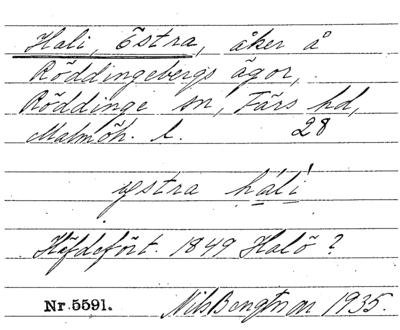 Hali, Östra, åker å
Röddingebergs ägor,
Röddinge sn, Färs hd,
Malmöh. l. 28
ystra háli
Häfdefört. 1849 Halö?
Nr 5591. Nils Bengtsson 1935.